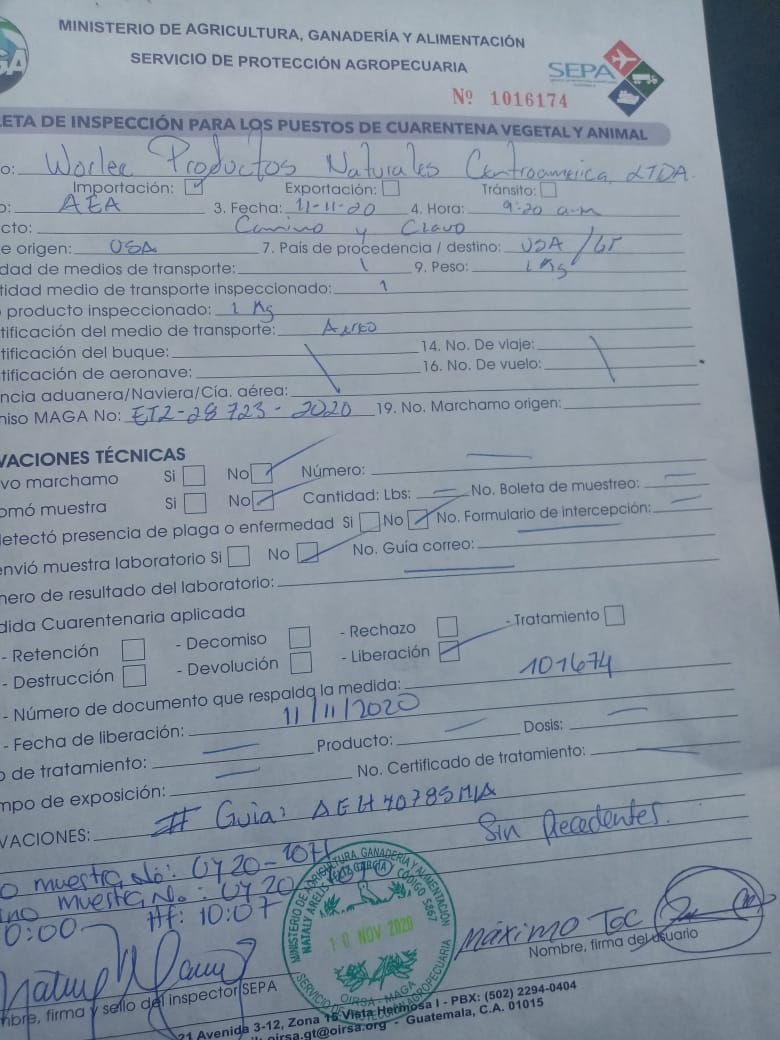 MINISTERIO DE AGRICULTURA, GANADERÍA Y ALIMENTACIÓN
SERVICIO DE PROTECCIÓN AGROPECUARIA
SEPA
Nº 1016174
LETA DE INSPECCIÓN PARA LOS PUESTOS DE CUARENTENA VEGETAL Y ANIMAL
o: Worlee Productos Naturales Centroamerica, LTDA.
Importación: Exportación: Tránsito:
o: AEA 3. Fecha: 11-11-20 4. Hora: 9:20 a.m
cto: Comino y Clavo
e origen: USA 7. País de procedencia / destino: USA/GT
dad de medios de transporte: 1 9. Peso: 1 Kg
tidad medio de transporte inspeccionado: 1
producto inspeccionado: 1 Kg
tificación del medio de transporte: Aereo
tificación del buque: 14. No. De viaje:
tificación de aeronave: 16. No. De vuelo:
ncia aduanera/Naviera/Cía. aérea:
miso MAGA No: ETZ-28723-2020 19. No. Marchamo origen:
VACIONES TÉCNICAS
vo marchamo Si No Número:
omó muestra Si No Cantidad: Lbs: No. Boleta de muestreo:
etectó presencia de plaga o enfermedad Si No No. Formulario de intercepción:
envió muestra laboratorio Si No No. Guía correo:
mero de resultado del laboratorio:
dida Cuarentenaria aplicada
- Retención - Decomiso - Rechazo - Tratamiento
- Destrucción - Devolución - Liberación
- Número de documento que respalda la medida: 101674
- Fecha de liberación: 11/11/2020
o de tratamiento: Producto: Dosis:
mpo de exposición: No. Certificado de tratamiento:
VACIONES: # Guia: AEH40785MIA
Sin Precedentes.
o muestra No: 0720-1071
no muestra No.: 0720
0:00 Hf: 10:07
MINISTERIO DE AGRICULTURA, GANADERÍA Y ALIMENTACIÓN
CÓDIGO 5867
10 NOV 2020
OIRSA - MAGA
SERVICIO DE PROTECCIÓN AGROPECUARIA
Máximo Toc
Nombre, firma del usuario
mbre, firma y sello del inspector SEPA
21 Avenida 3-12, Zona 15 Vista Hermosa I - PBX: (502) 2294-0404
oirsa.gt@oirsa.org - Guatemala, C.A. 01015